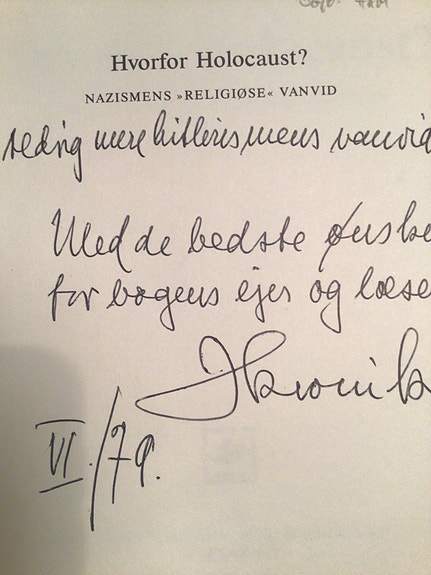 Hvorfor Holocaust?
NAZISMENS »RELIGIØSE« VANVID
aldrig mere hitlerismens vanvid
Med de bedste ønske
for bogens ejer og læse
VI./79.